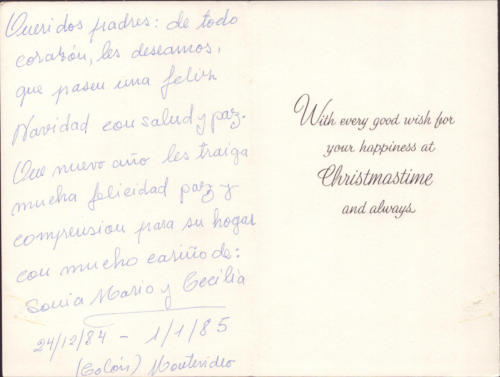 Queridos padres: de todo
corazón, les deseamos,
que pasen una feliz
Navidad con salud y paz.
Que nuevo año les traiga
mucha felicidad paz y
comprension para su hogar
con mucho cariño de:
Sonia Mario y Cecilia
24/12/84 - 1/1/85
(Colón) Montevideo
With every good wish for
your happiness at
Christmastime
and always.